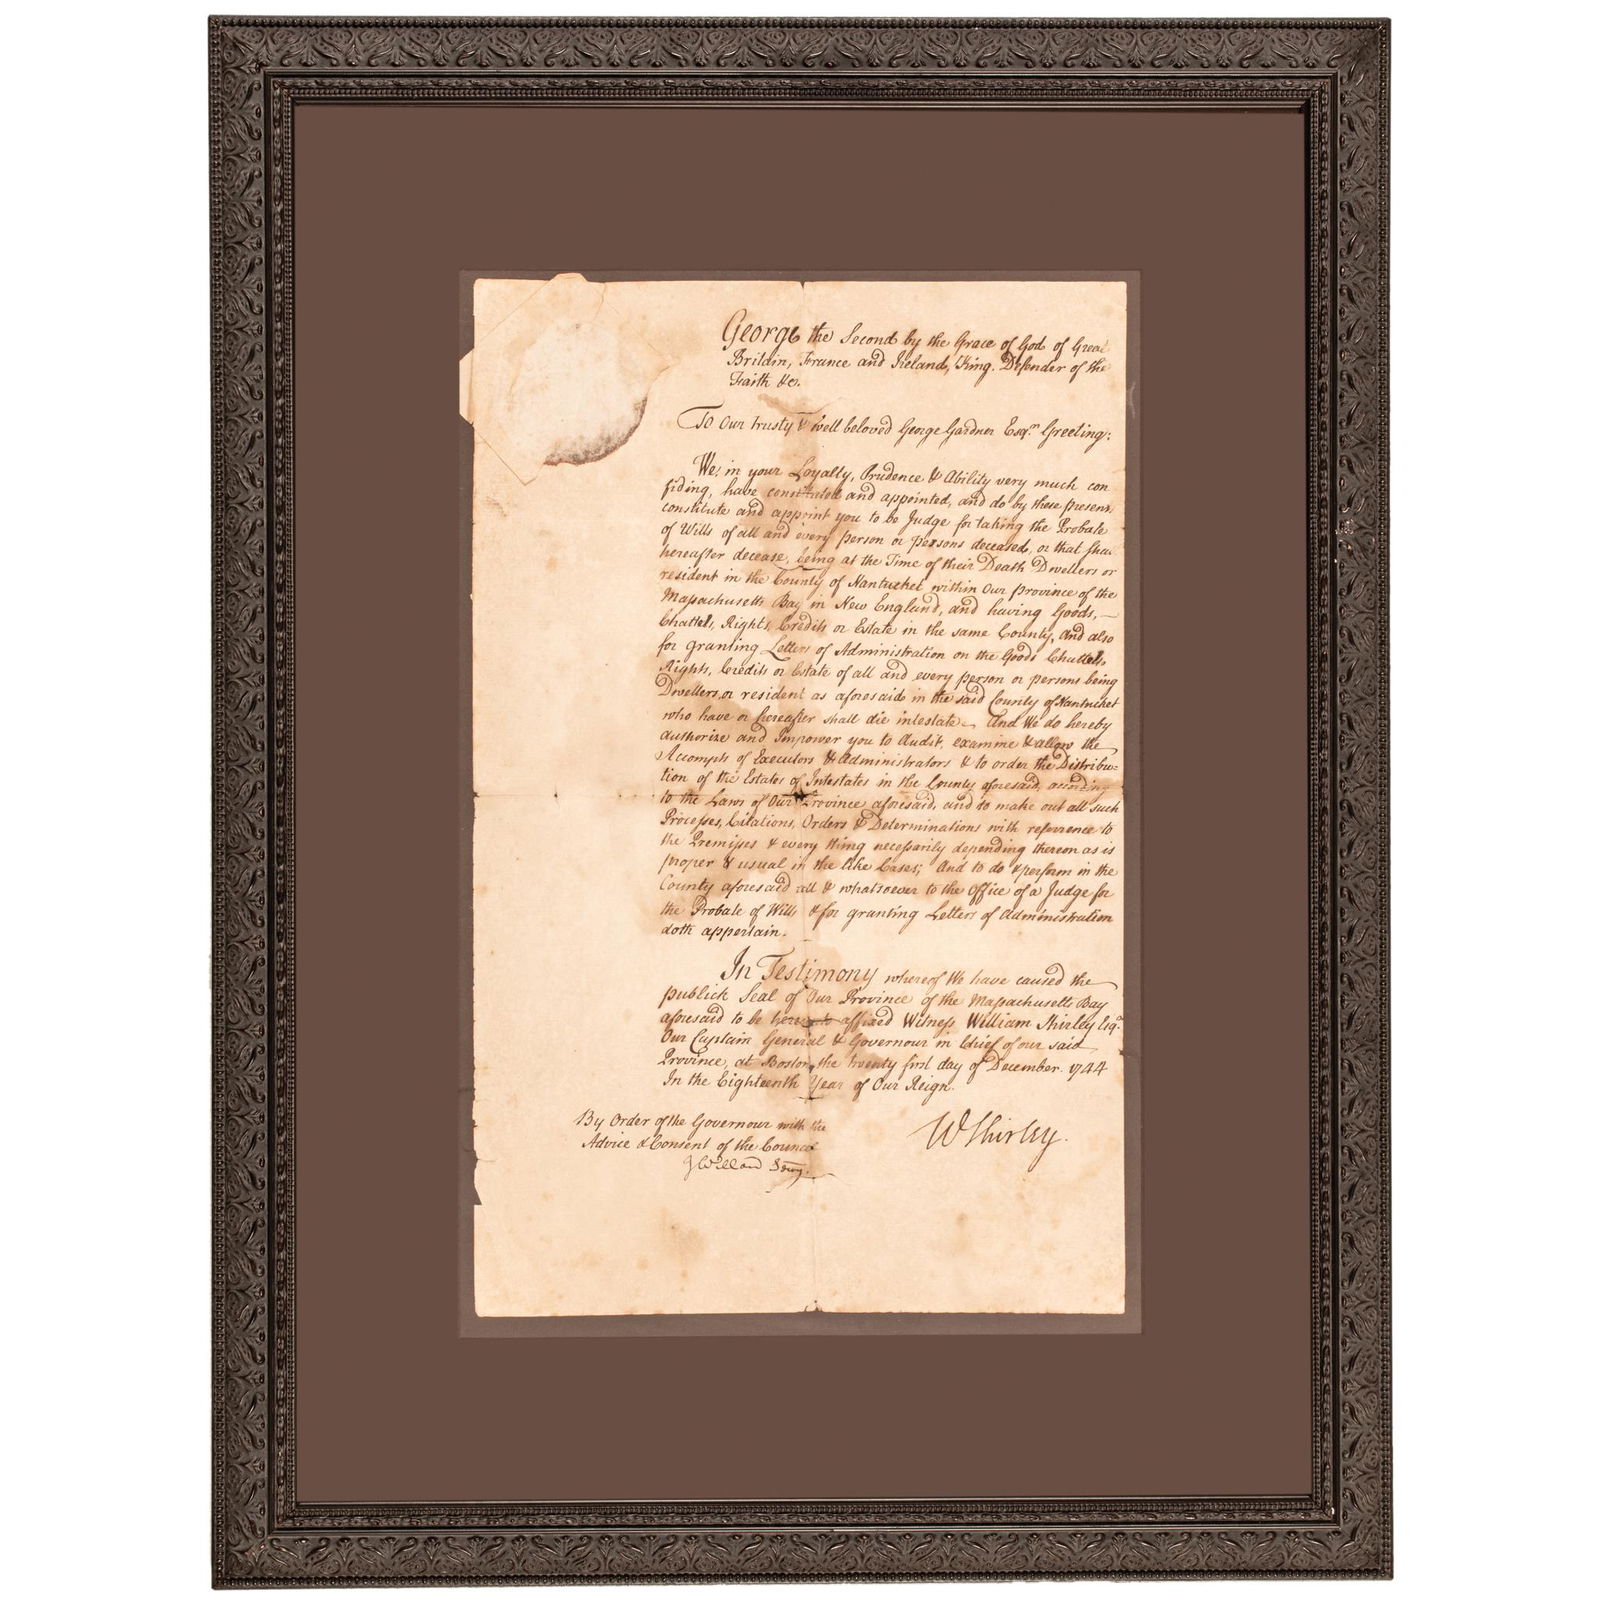 George the Second by the Grace of God of Great
Britain, France and Ireland, King. Defender of the
Faith &c.
To Our trusty & well beloved George Gardner Esqr. Greeting:
We, in your Loyalty, Prudence & Ability very much con
fiding, have constituted and appointed, and do by these presents
constitute and appoint you to be Judge for taking the Probate
of Wills of all and every person or persons deceased, or that sha
hereafter decease, being at the Time of their Death Dwellers or
resident in the County of Nantucket within Our province of the
Massachusetts Bay in New England, and having Goods,
Chattel, Rights, Credits or Estate in the same County, And also
for granting Letters of Administration on the Goods Chattels,
Rights, Credits or Estate of all and every person or persons being
Dwellers, or resident as aforesaid in the said County of Nantucket
who have or hereafter shall die intestate - And We do hereby
authorize and Impower you to Audit, examine & allow the
Accompts of Executors & Administrators & to order the Distribu-
tion of the Estates of Intestates in the County aforesaid, according
to the Laws of Our Province aforesaid, and to make out all such
Processes, Citations, Orders & Determinations with reference to
the Premisses & every thing necessarily depending thereon as is
proper & usual in the like Cases; And to do & perform in the
County aforesaid all & whatsoever to the Office of a Judge for
the Probate of Wills & for granting Letters of Administration
doth appertain.
In Testimony whereof We have caused the
publick Seal of Our Province of the Massachusetts Bay
aforesaid to be hereunto affixed Witness William Shirley Esqr.
Our Captain General & Governour in Chief of our said
Province, at Boston, the twenty first day of December. 1744
In the Eighteenth Year of Our Reign.
By Order of the Governour with the
Advice & Consent of the Council
WShirley.
J Willard Secry.